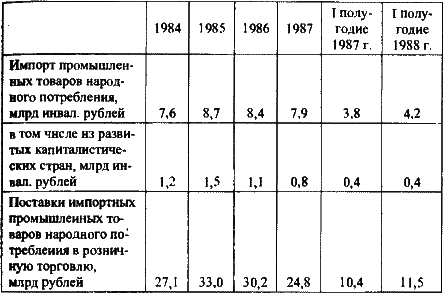 1984 1985 1986 1987 I полу-
годие
1987 г. I полу-
годие
1988 г.
Импорт промышлен-
ных товаров народ-
ного потребления,
млрд инвал. рублей 7,6 8,7 8,4 7,9 3,8 4,2
в том числе из разви-
тых капиталистиче-
ских стран, млрд ин-
вал. рублей 1,2 1,5 1,1 0,8 0,4 0,4
Поставки импортных
промышленных то-
варов народного по-
требления в рознич-
ную торговлю,
млрд рублей 27,1 33,0 30,2 24,8 10,4 11,5